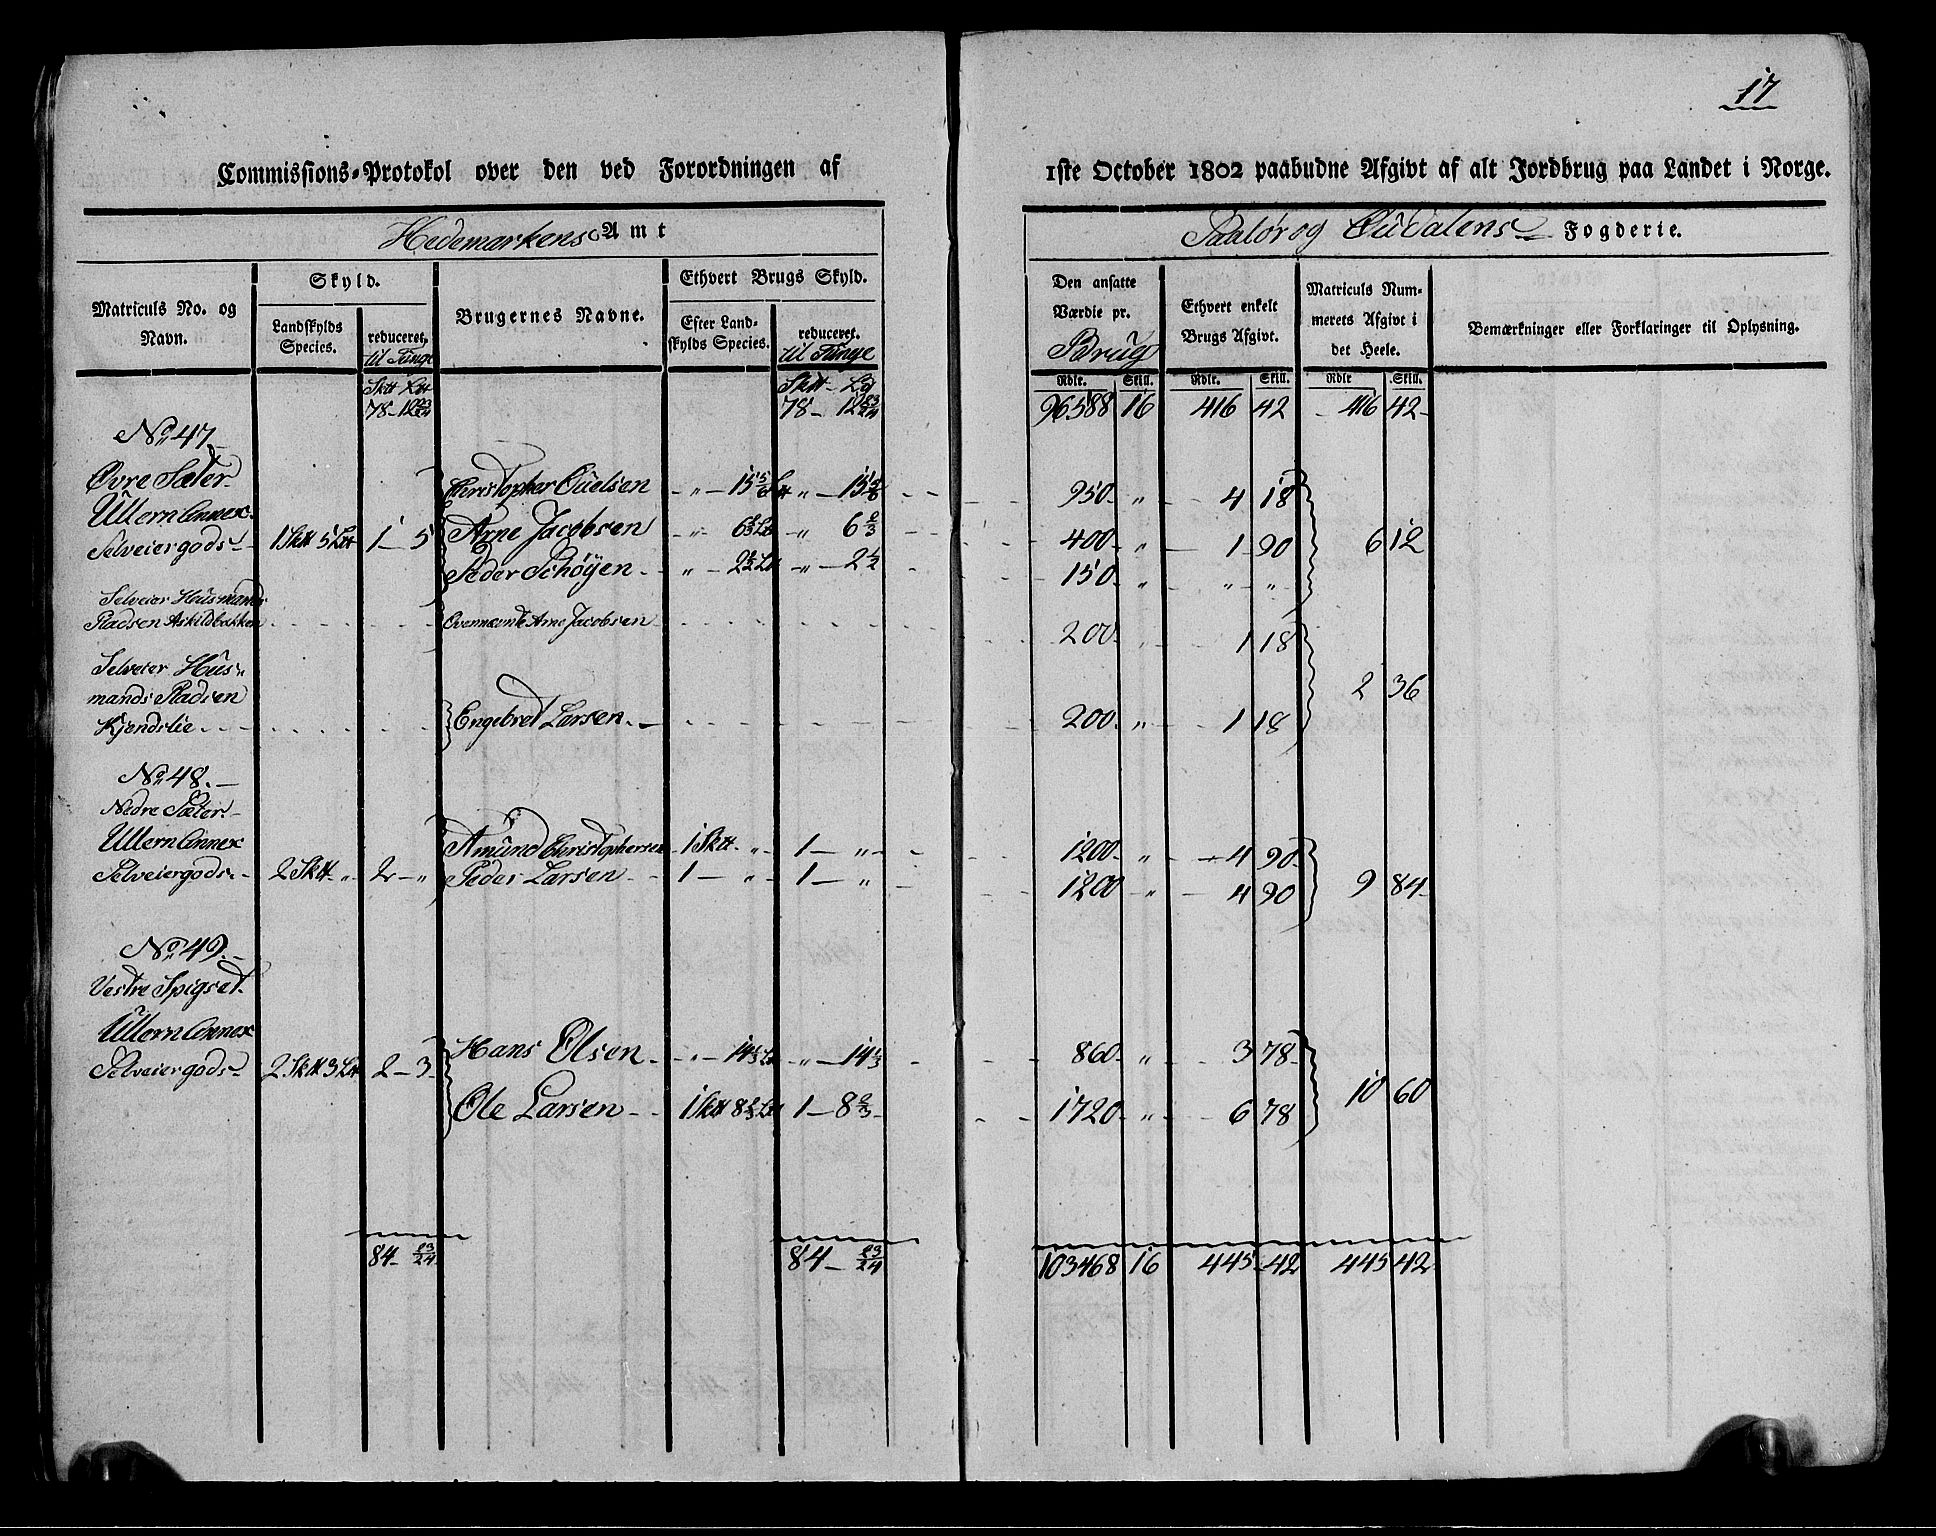 17
Commissions-Protokol over den ved Forordningen af 1ste October 1802 paabudne Afgivt af alt Jordbrug paa Landet i Norge.
Hedemarkens Amt
Soløer og Oudalens Fogderie.
Matriculs No. og Navn.
Skyld.
Landskylds Species.
reduceret, til Tunge
Brugernes Navne.
Ethvert Brugs Skyld.
Efter Landskylds Species.
reduceret. til Tunge
Den ansatte Værdie pr. Brug
Ethvert enkelt Brugs Afgivt.
Matriculs Nummerets Afgivt i det Heele.
Bemærkninger eller Forklaringer til Oplysning.
Rdlr. Skill. Rdlr. Skill. Rdlr Skill.
Sktt Ltt Sktt Ltt
78 - 12 23/24 78 - 12 23/24 96588 16 416 42 416 42
No. 47
Øvre Sæter Christopher Ouelsen " 15 5/6 Ltt " 15 5/6 950 " 4 18
Ullern Annex
Selveiergods 1 Sktt 5 Ltt 1 - 5 Arne Jacobsen " 6 2/3 Ltt " 6 2/3 400 " 1 90 6 12
Peder Schøyen " 2 1/2 Ltt " 2 1/2 150 " " "
Selveier Husmands
Pladsen Askildbakken Ovennævnte Arne Jacobsen 200 " 1 18
Selveier Hus=
mands Pladsen 2 36
Kjendslie Engebret Larsen 200 " 1 18
No. 48
Nedre Sæter
Ullern Annex Amund Christophersen 1 Sktt " 1 - " 1200 " 4 90
Selveiergods 2 Sktt " 2 - " Peder Larsen 1 - " 1 - " 1200 " 4 90 9 84
No. 49
Vestre Spigset
Ullern Annex Hans Olsen " 14 1/3 Ltt " 14 1/3 860 " 3 78
Selveiergods 2 Sktt 3 Ltt 2 - 3
Ole Larsen 1 Sktt 8 2/3 Ltt 1 - 8 2/3 1720 " 6 78 10 60
84 - 23/24 84 - 23/24 103468 16 445 42 445 42